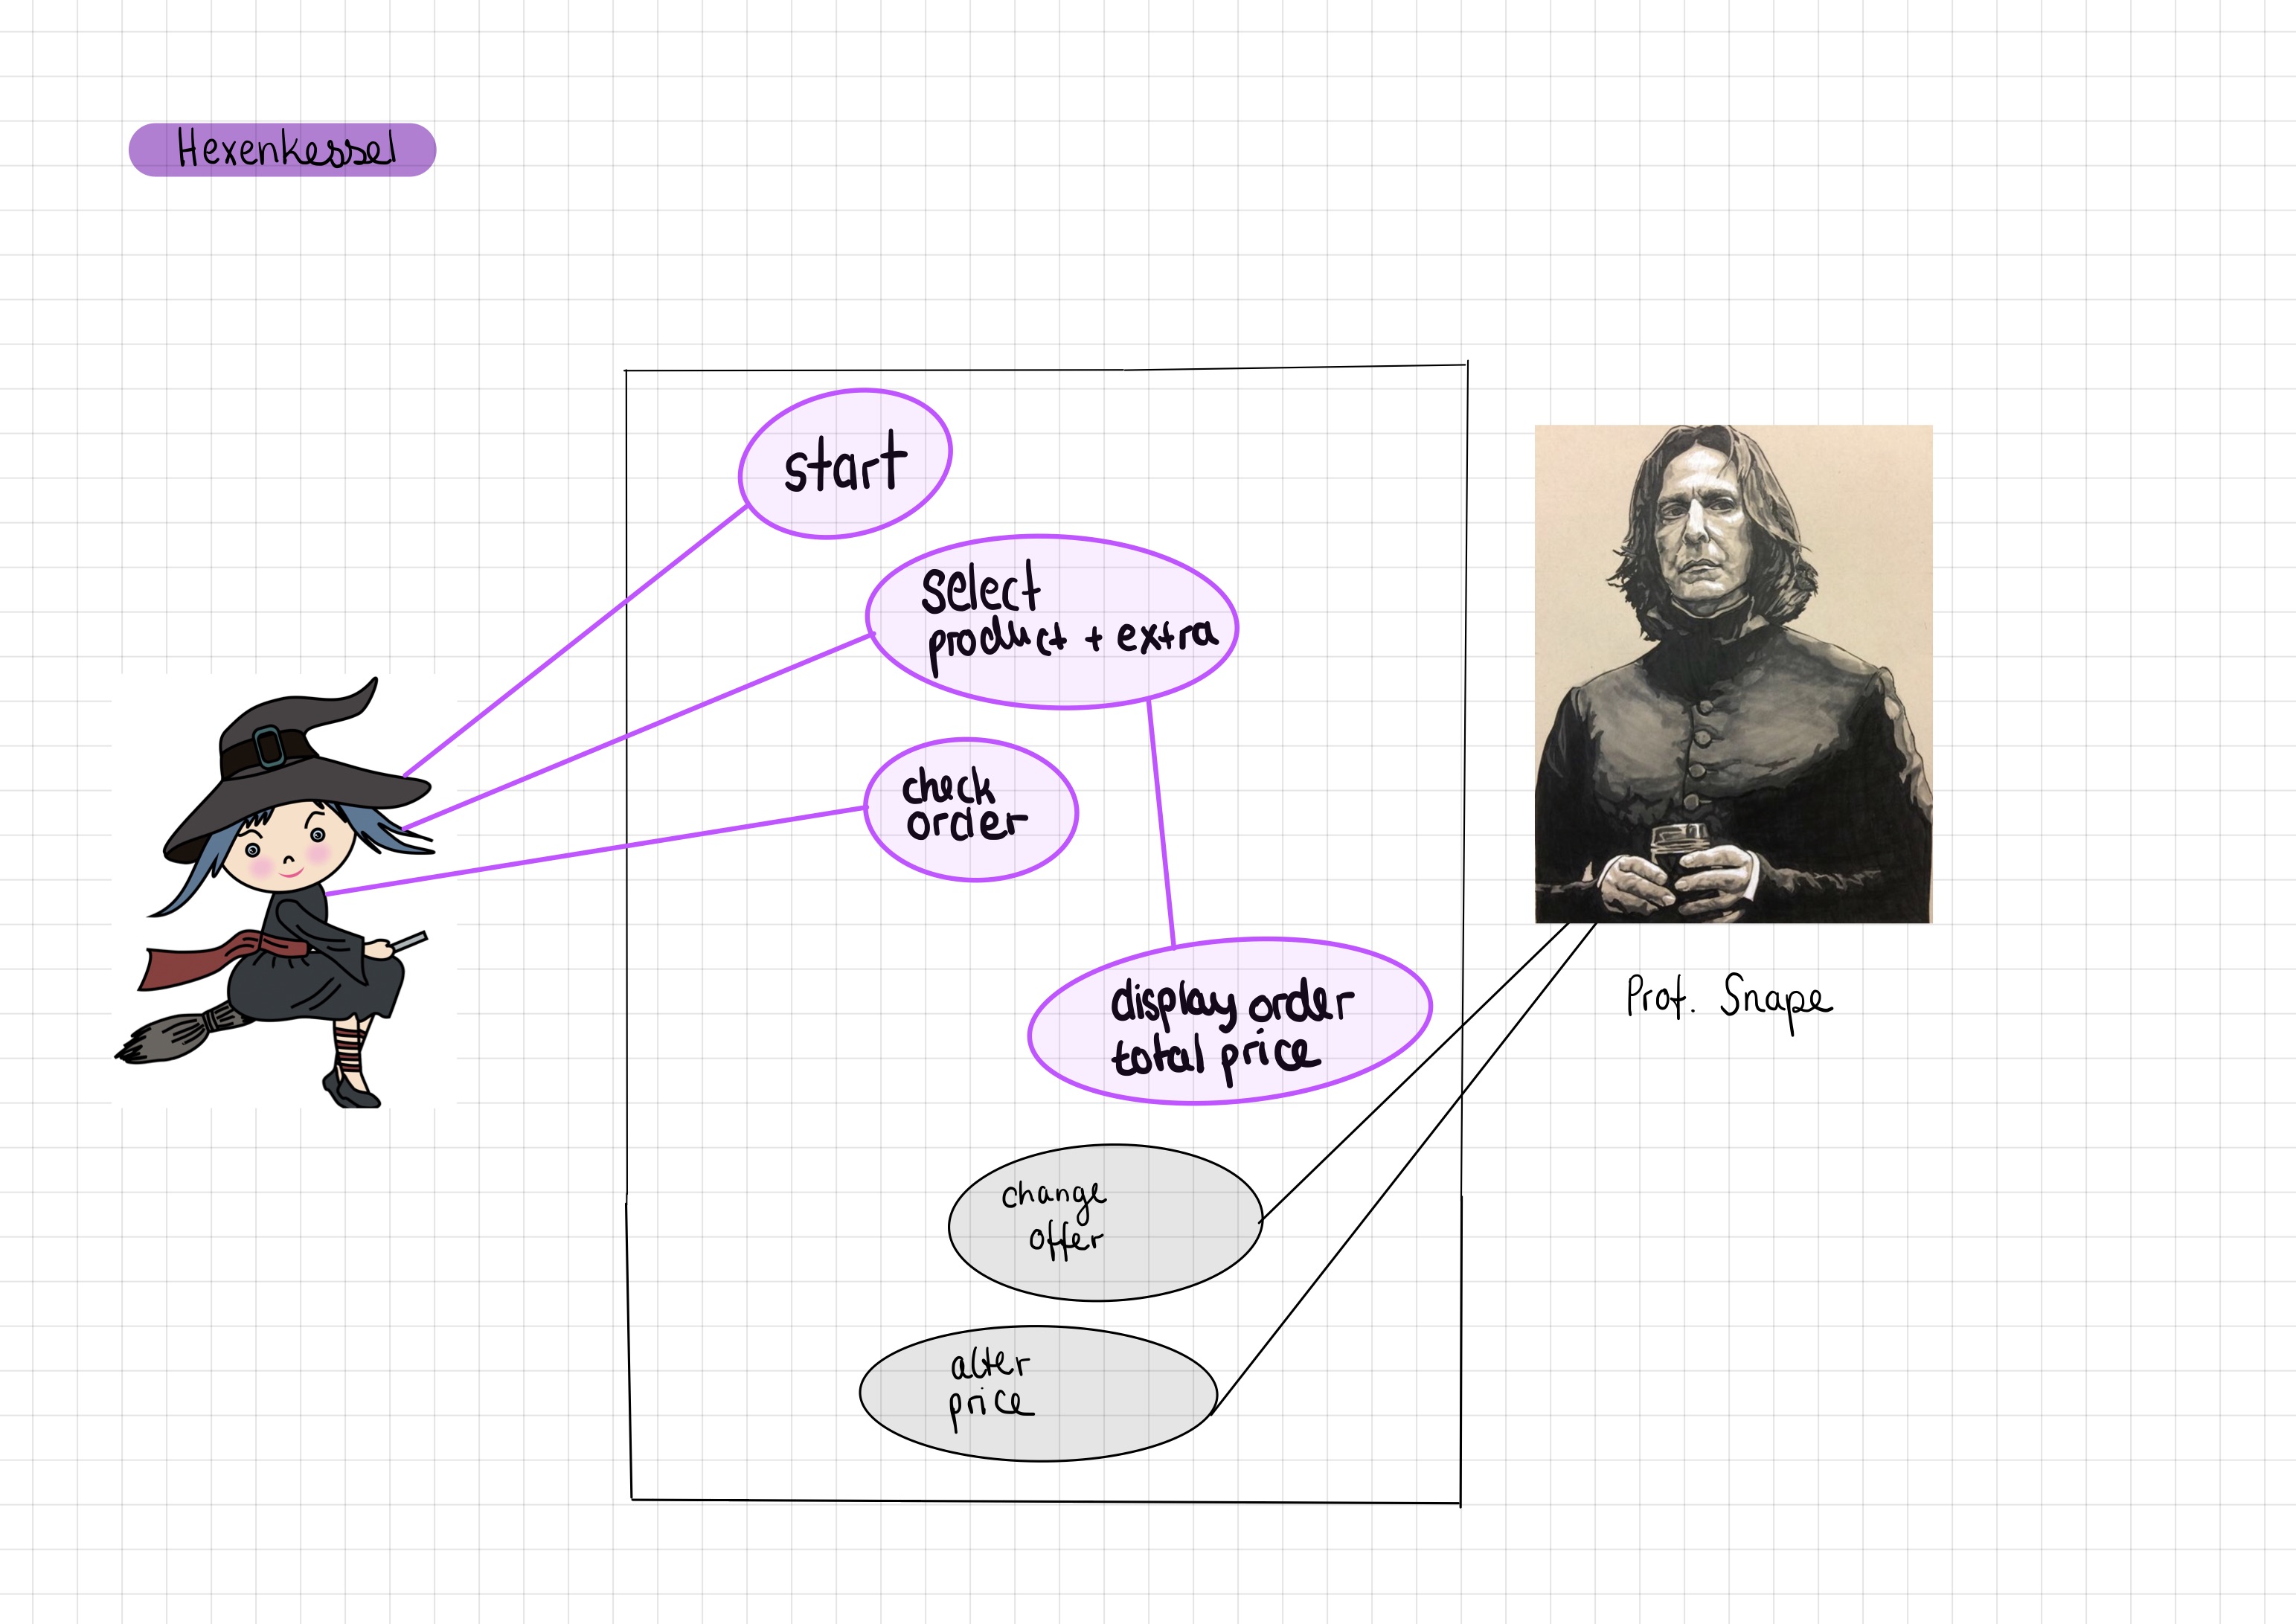 Hexenkessel
start
select
product + extra
check
order
display order
total price
Prof. Snape
change
offer
alter
price